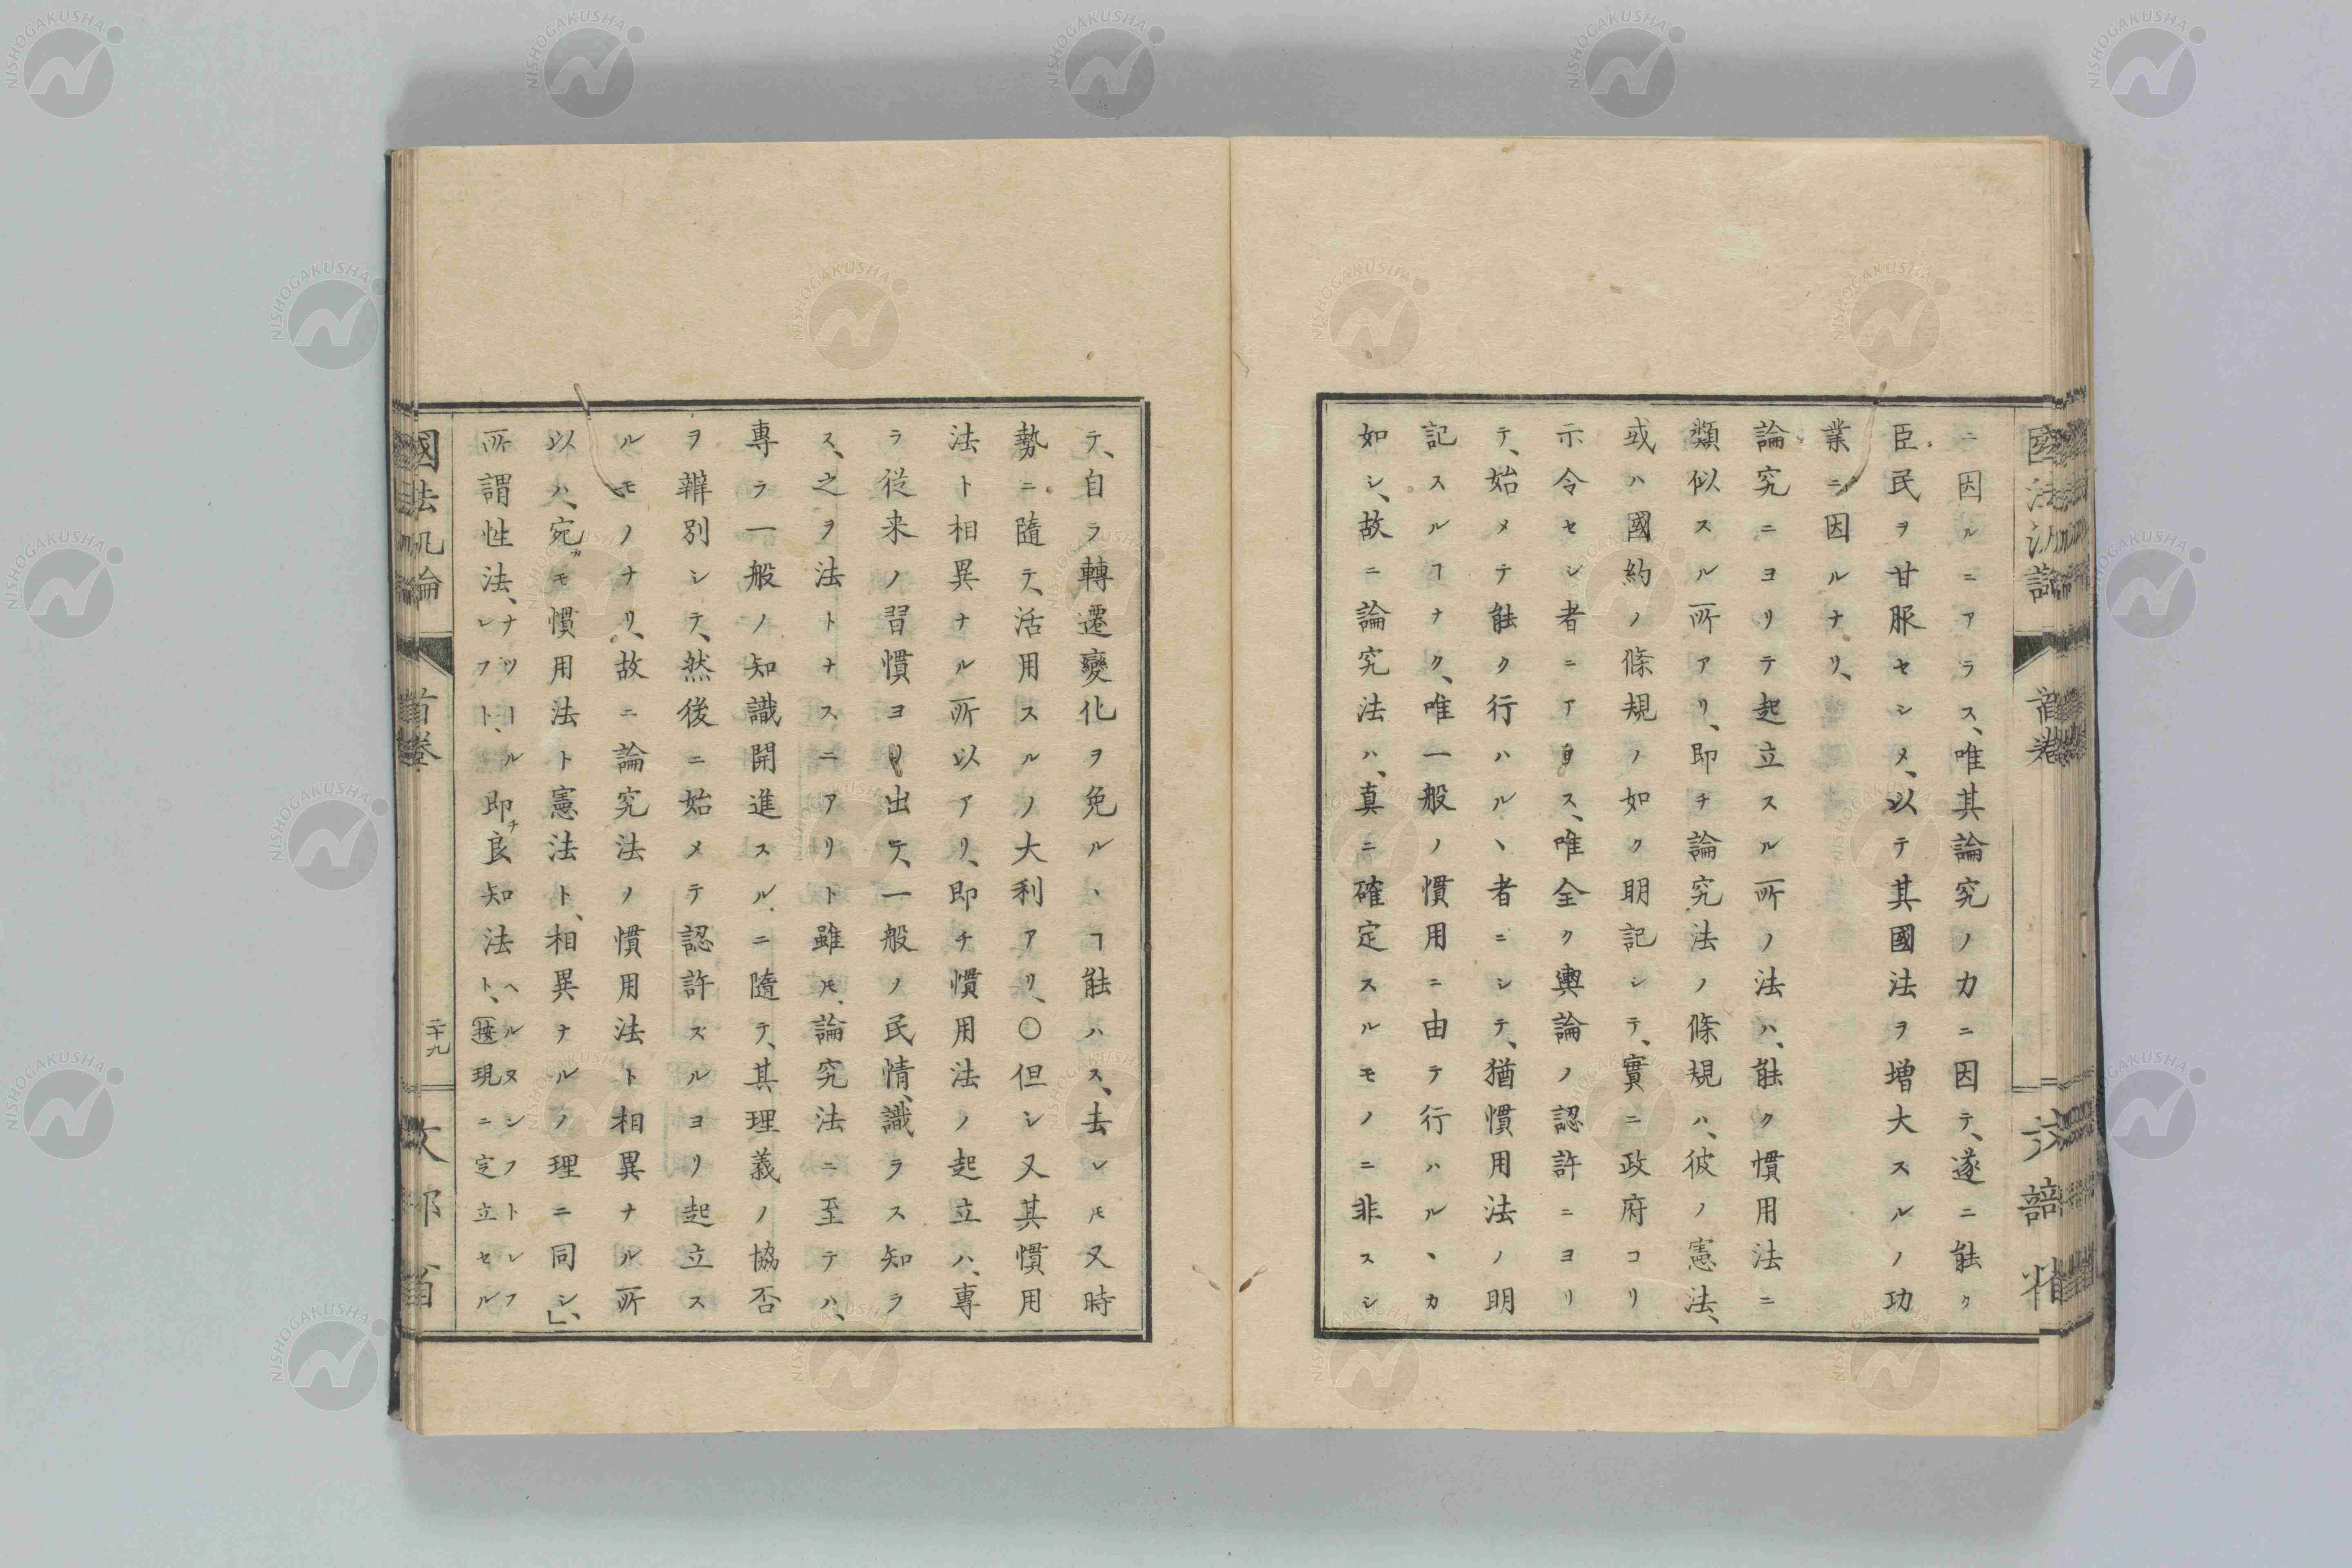 ニ因ルニアラス、唯其論究ノ力ニ因テ、遂ニ能ク
臣民ヲ甘服セシメ、以テ其國法ヲ増大スルノ功
業ニ因ルナリ、
論究ニヨリテ起立スル所ノ法ハ、能ク慣用法ニ
類似スル所アリ、即チ論究法ノ條規ハ、彼ノ憲法、
或ハ國約ノ條規ノ如ク明記シテ、實ニ政府ヨリ
示令セシ者ニアラス、唯全ク輿論ノ認許ニヨリ
テ、始メテ能ク行ハルヽ者ニシテ、猶慣用法ノ明
記スルヿナク、唯一般ノ慣用ニ由テ行ハルヽカ
如シ、故ニ論究法ハ、真ニ確定スルモノニ非スシ
テ、自ラ轉遷變化ヲ免ルヽヿ能ハス、去レ𪜈又時
勢ニ隨テ、活用スルノ大利アリ、〇但シ又其慣用
法ト相異ナル所以アリ、即チ慣用法ノ起立ハ、專
ラ従来ノ習慣ヨリ出テ、一般ノ民情、識ラス知ラ
ス、之ヲ法トナスニアリト雖𪜈、論究法ニ至テハ、
專ラ一般ノ知識開進スルニ隨テ、其理義ノ協否
ヲ辨別シテ、然後ニ始メテ認許ズルヨリ起立ス
ルモノナリ、故ニ論究法ノ慣用法ト相異ナル所
以ハ、宛カモ慣用法ト憲法ト、相異ナルノ理ニ同シ、」
所謂性法、ナツールレフト、即チ良知法ト、ヘルヌンフトレフ
按現ニ定立セル
國法汎論
首巻
二十九
文部省